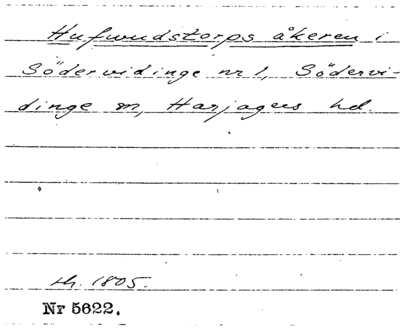 Hufwudstorps åkeren i
Södervidinge nr 1, Södervi-
dinge sn, Harjagers hd.
th. 1805.
Nr 5622.